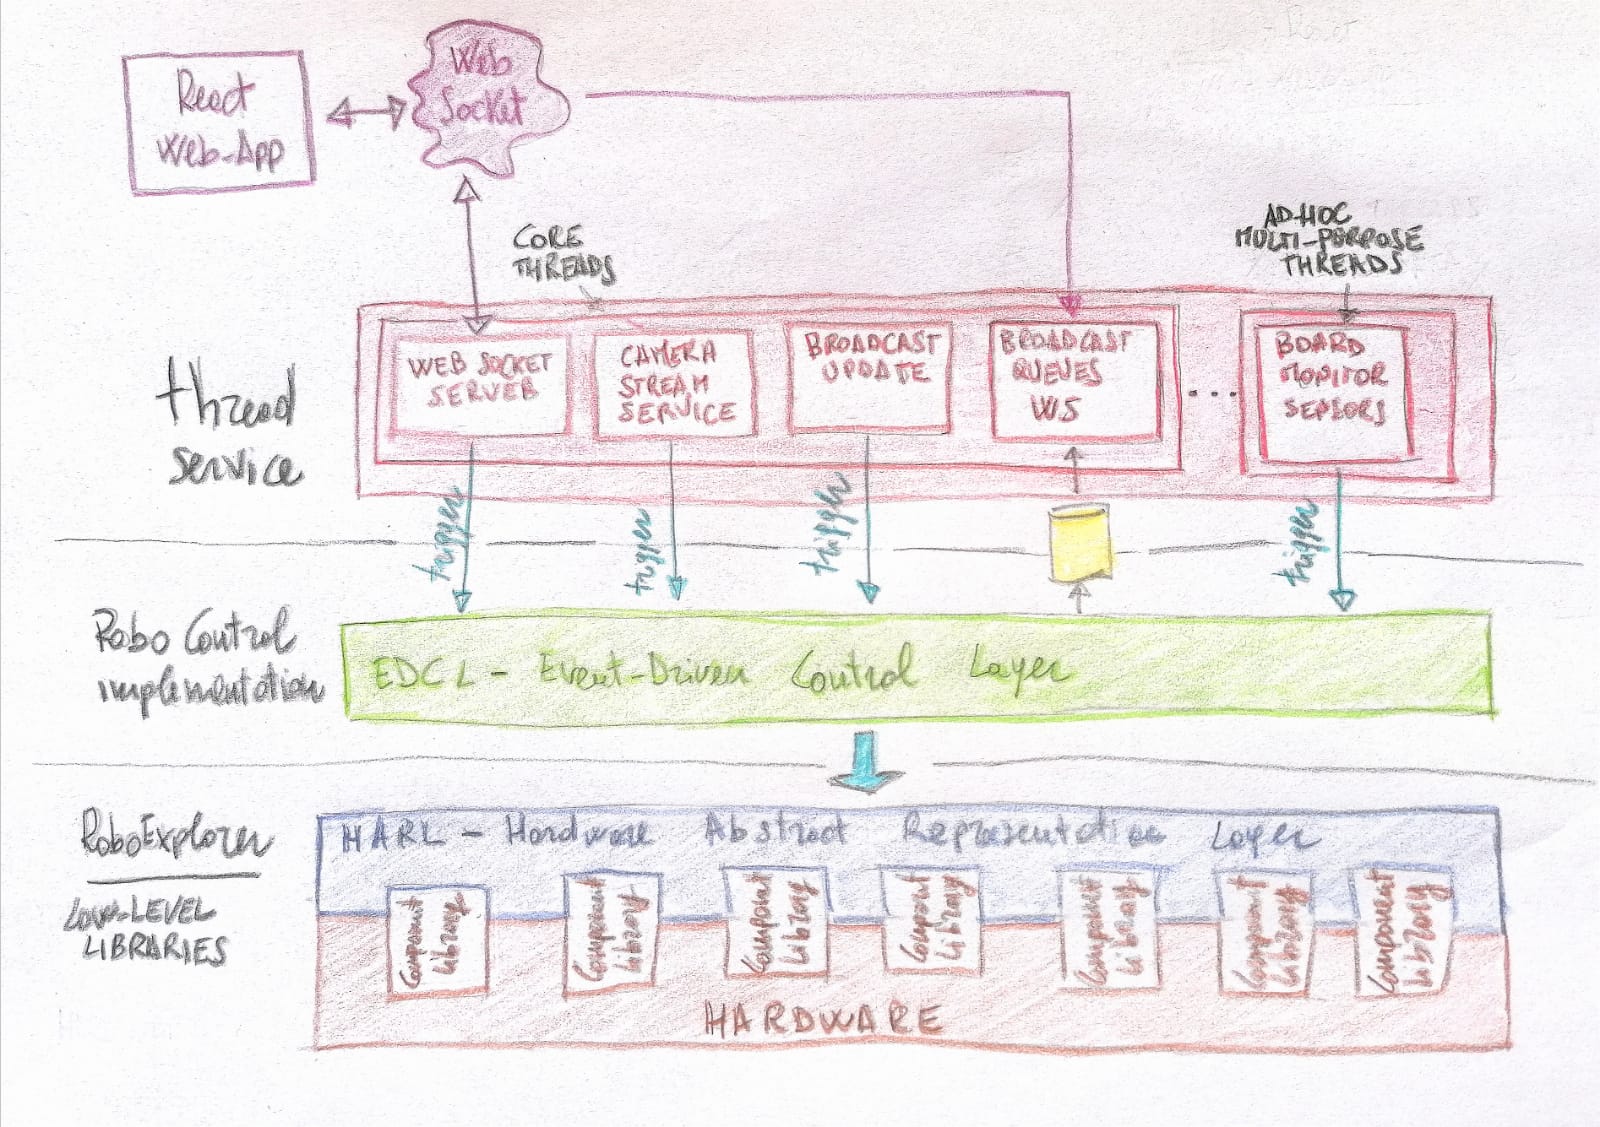 React
Web-App
Web
Socket
CORE
THREADS
AD-HOC
MULTI-PURPOSE
THREADS
thread
service
WEB SOCKET
SERVER
CAMERA
STREAM
SERVICE
BROADCAST
UPDATE
BROADCAST
QUEUES
WS
...
BOARD
MONITOR
SENSORS
trigger
trigger
trigger
trigger
Robo Control
implementation
EDCL - Event-Driven Control Layer
RoboExplorer
LOW-LEVEL
LIBRARIES
HARL - Hardware Abstract Representation Layer
Component
Library
Component
Library
Component
Library
Component
Library
Component
Library
Component
Library
Component
Library
HARDWARE